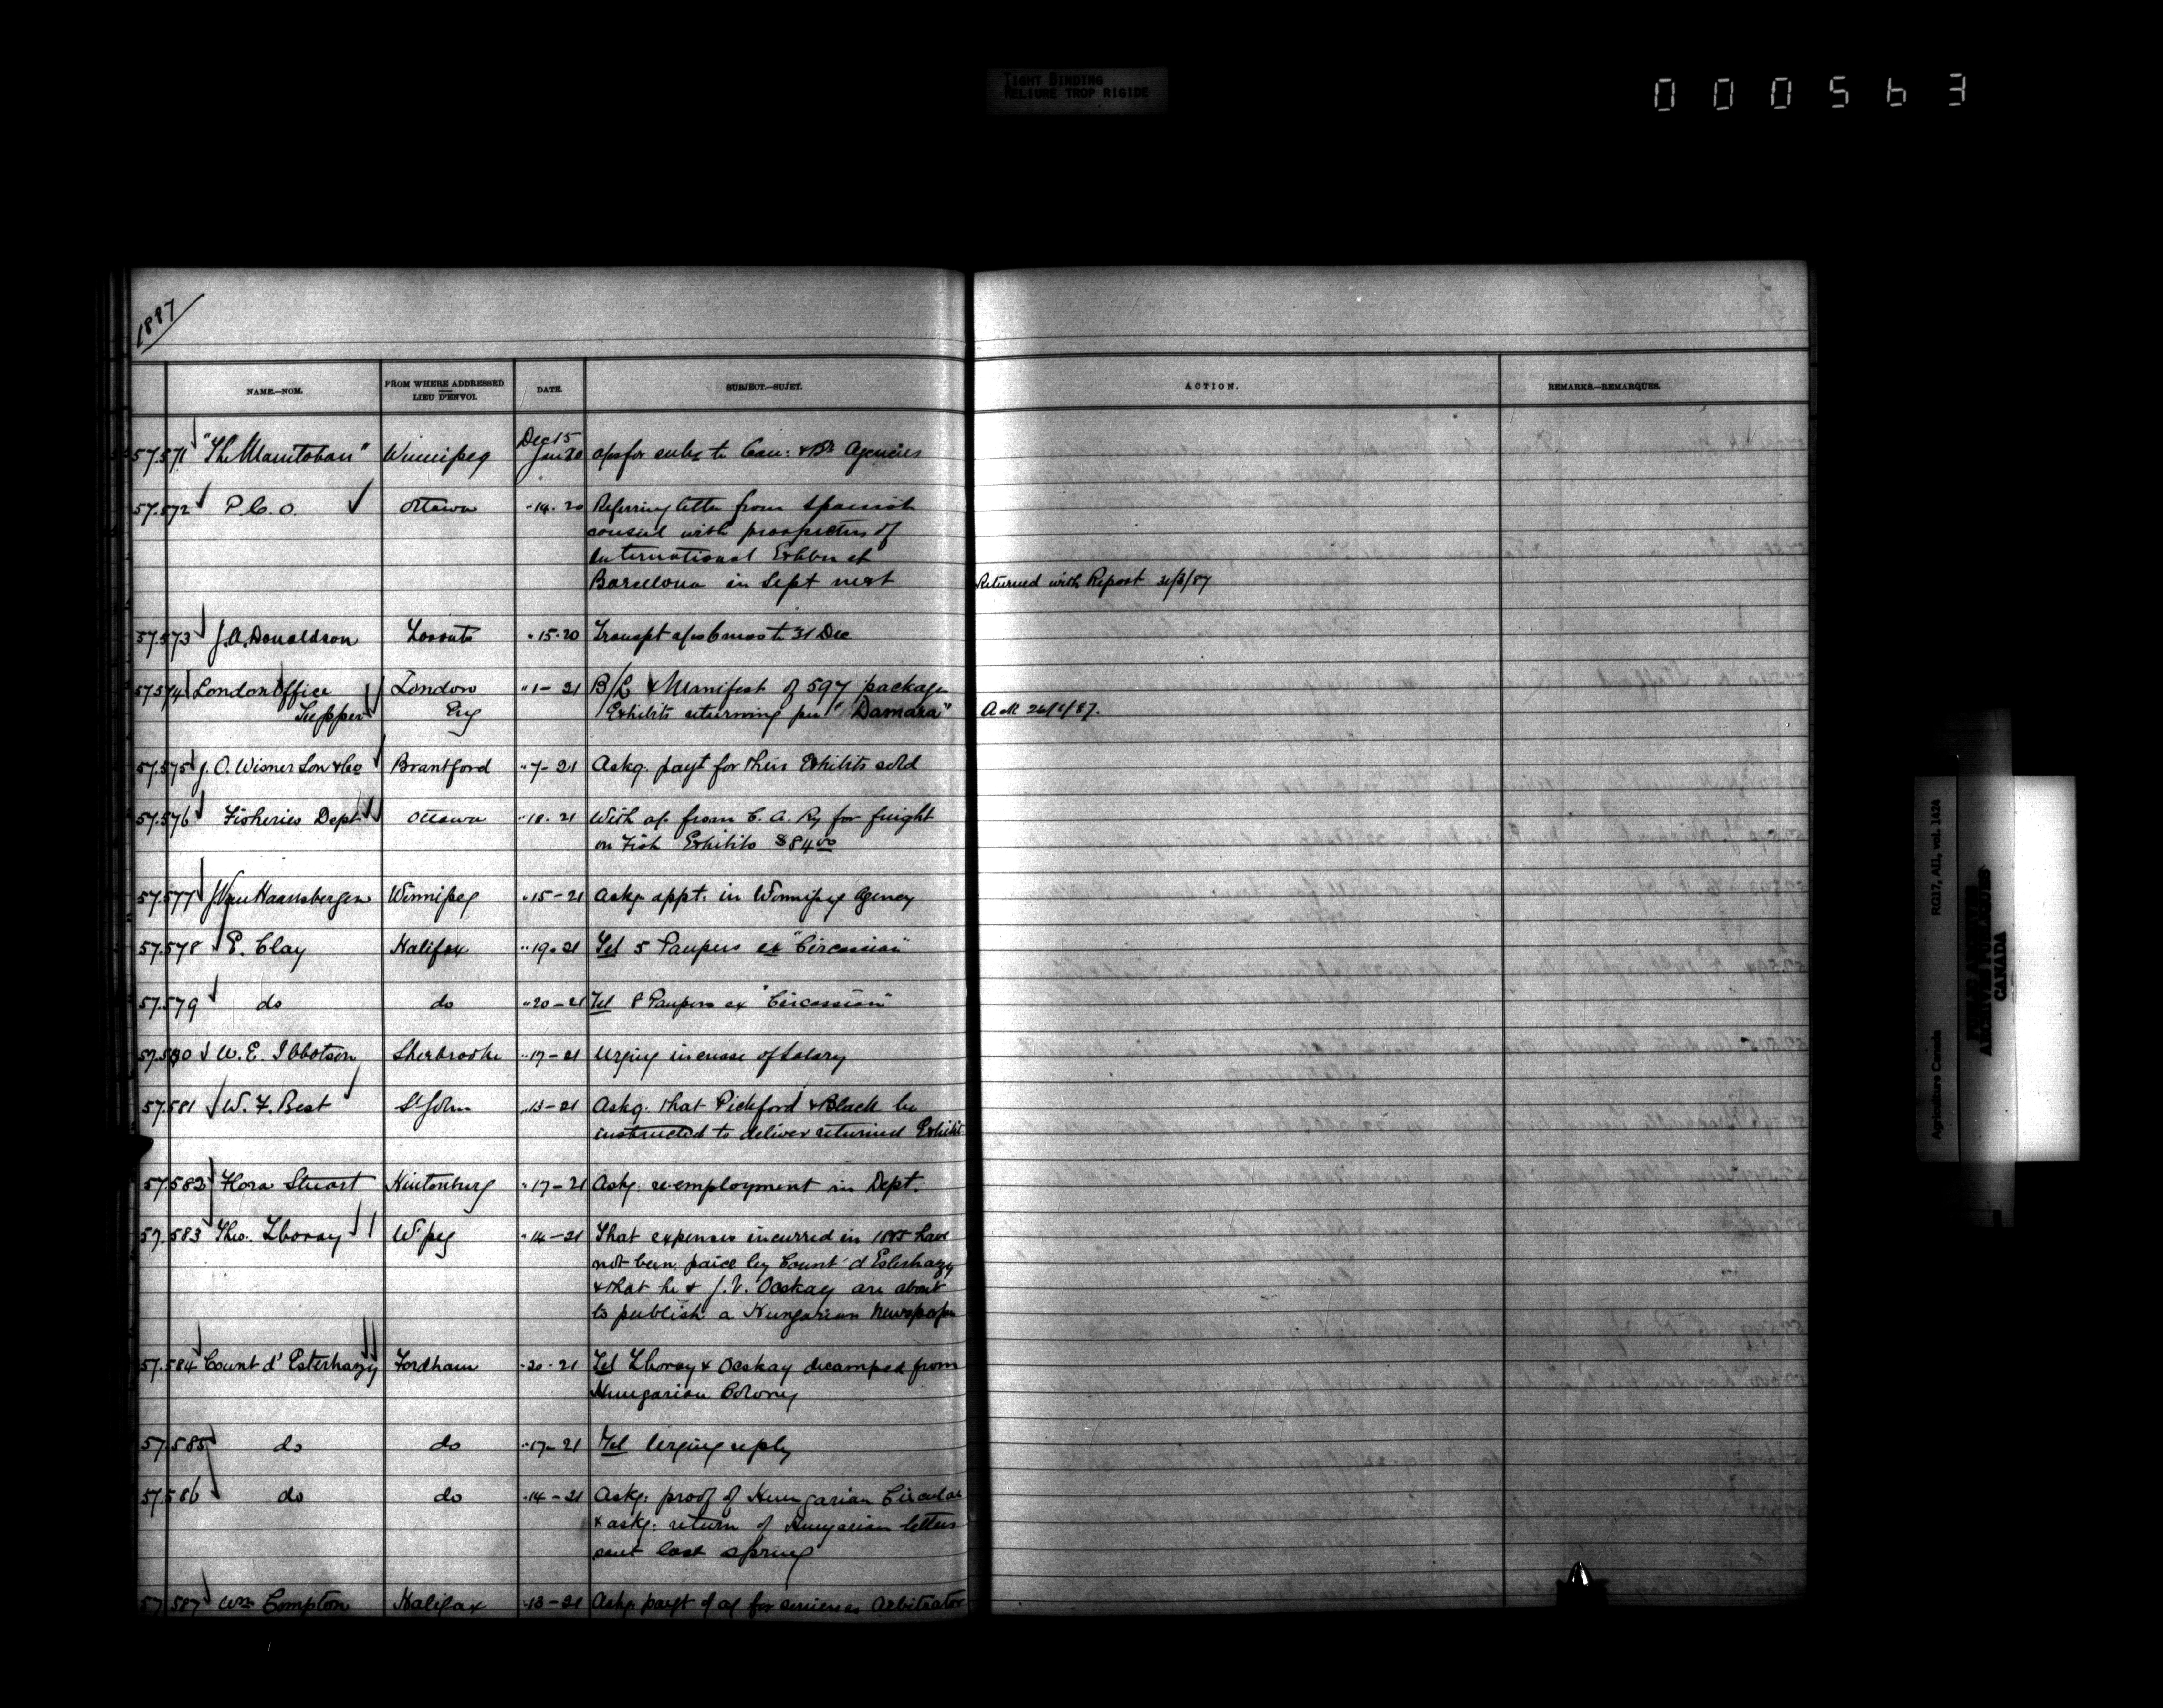 TIGHT BINDING
RELIURE TROP RIGIDE
000563
1887
NAME.—NOM.
FROM WHERE ADDRESSED
LIEU D'ENVOI.
DATE.
SUBJECT.—SUJET.
ACTION.
REMARKS.—REMARQUES.
57.571 "The Manitoban" Winnipeg Dec 15 Jan 20 a/c for subs to Can: & Br Agencies
57.572 P.C.O. Ottawa " 14 - 20 Referring letter from Spanish
consul with prospectus of
International Exhbn at
Barcelona in Sept next Returned with Report
57.573 J.A. Donaldson Toronto " 15 - 20 Transpt a/c 6 mos to 31 Dec
57.574 London Office London " 1 - 21 B/L & Manifest of 597 packages
Tupper Eng Exhibits returning per "Damara"
57.575 J. O. Wisner Son & Co Brantford " 7 - 21 Askg. payt for their Exhibits sold
57.576 Fisheries Dept Ottawa " 18 - 21 With a/c from C. A. Ry for freight
on Fish Exhibits $84.00
57.577 J. Van Haansbergen Winnipeg " 15 - 21 Askg. appt. in Winnipeg Agency
57.578 E. Clay Halifax " 19 - 21 Tel 5 Paupers ex "Circassian"
57.579 do do " 20 - 21 Tel 8 Paupers ex "Circassian"
57.580 W. E. Ibbotson Sherbrooke " 17 - 21 Urging increase of Salary
57.581 W. F. Best St John " 13 - 21 Askg. that Pickford & Black be
instructed to deliver returned Exhibit
57.582 Flora Stuart Hintonburg " 17 - 21 Askg. re-employment in Dept.
57.583 Theo. Zboray W'peg " 14 - 21 That expenses incurred in 1885 have
not been paid by Count d'Esterhazy
& that he & J. V. Ocskay are about
to publish a Hungarian Newspaper
57.584 Count d'Esterhazy Fordham " 20 - 21 Tel Zboray & Ocskay decamped from
Hungarian Colony
57.585 do do " 17 - 21 Tel Urging reply
57.586 do do " 14 - 21 Askg. proof of Hungarian Circular
& askg. return of Hungarian letters
sent last spring
57.587 Wm Compton Halifax " 13 - 21 Askg. payt of a/c for services as Arbitrator
Agriculture Canada RG17, AII, vol. 1424
PUBLIC ARCHIVES
ARCHIVES PUBLIQUES
CANADA